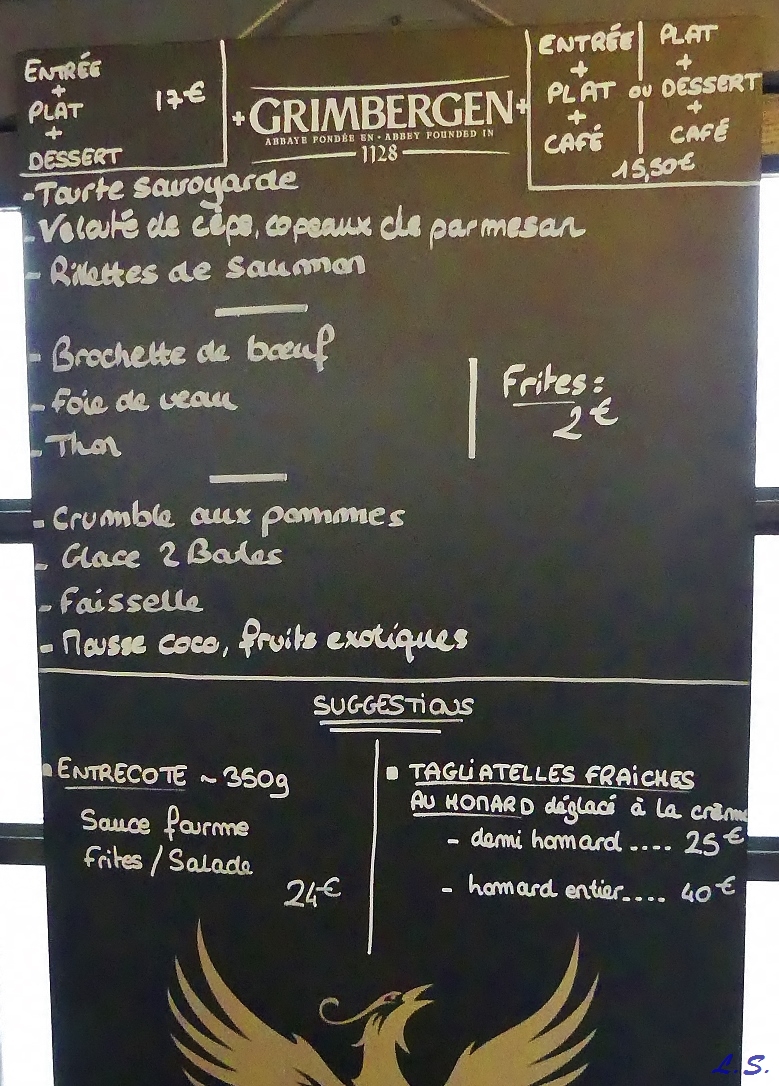 ENTRÉE
+
PLAT
+
DESSERT
17€
+GRIMBERGEN+
ABBAYE FONDÉE EN · ABBEY FOUNDED IN
1128
ENTRÉE
+
PLAT
+
CAFÉ
ou
PLAT
+
DESSERT
+
CAFÉ
15,50€
- Tourte savoyarde
- Velouté de cèpe, copeaux de parmesan
- Rillettes de saumon
- Brochette de bœuf
- Foie de veau
- Thon
Frites :
2€
- Crumble aux pommes
- Glace 2 Boules
- Faisselle
- Mousse coco, fruits exotiques
SUGGESTIONS
▪ ENTRECOTE ~ 350g
Sauce fourme
Frites / Salade
24€
▪ TAGLIATELLES FRAICHES
AU HOMARD déglacé à la crème
- demi homard .... 25€
- homard entier.... 40€
L.S.